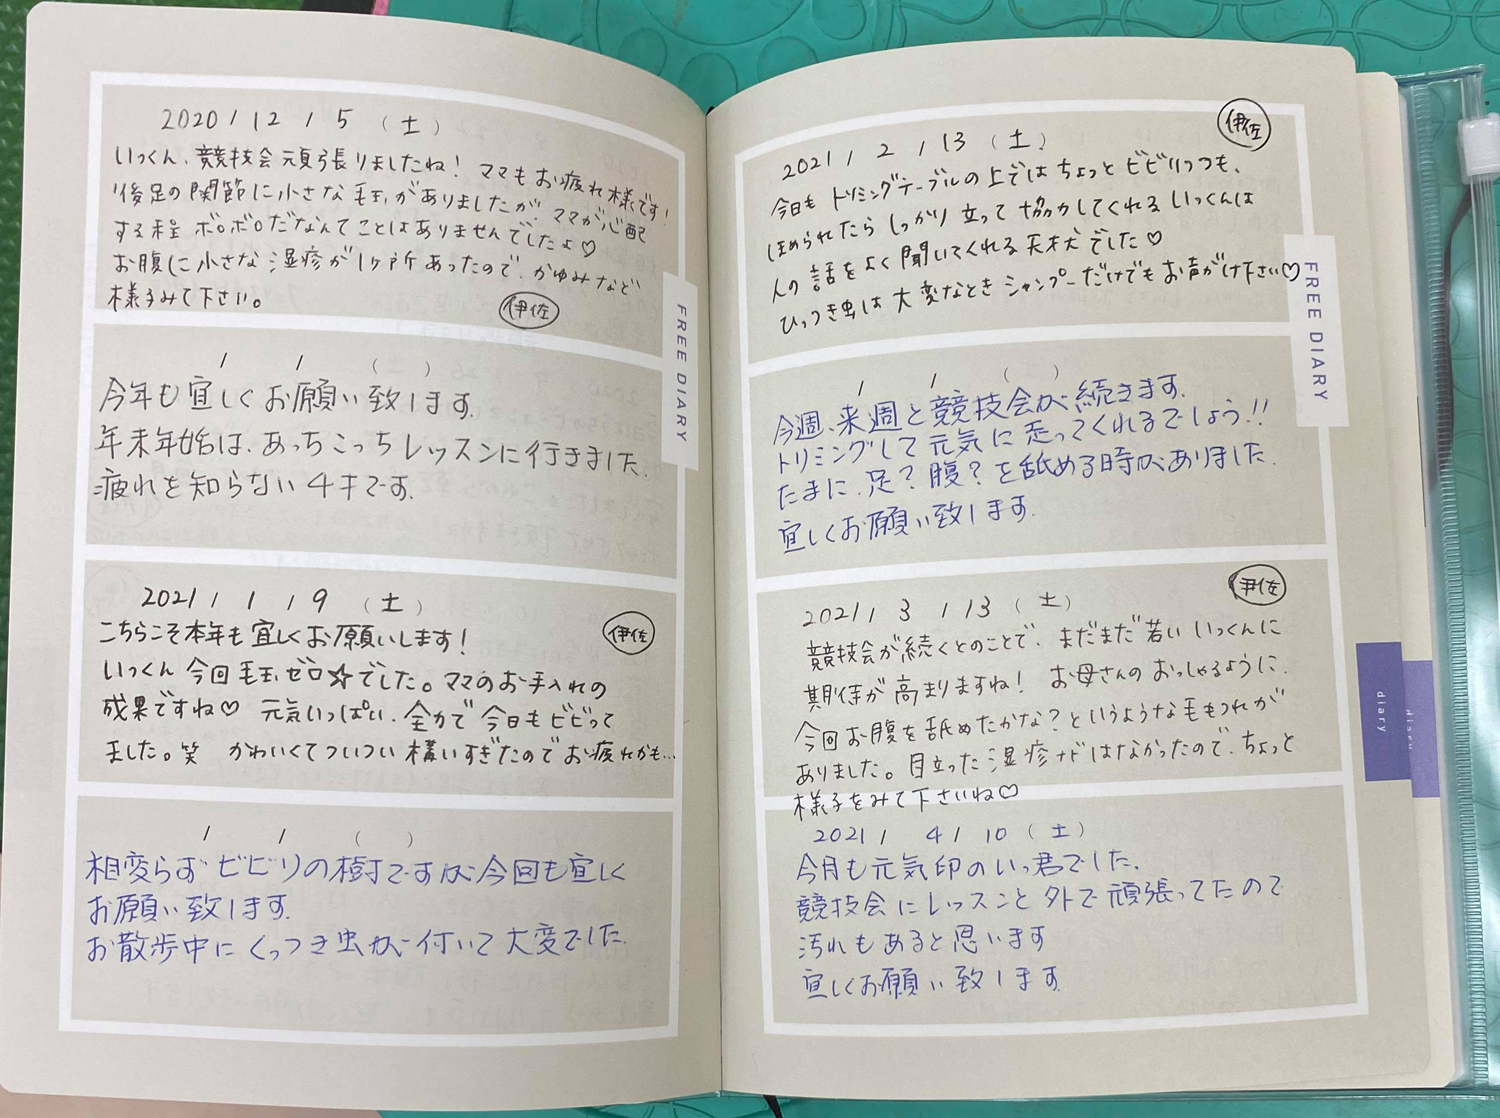 2020/12/5(土)
いっくん、競技会頑張りましたね! ママもお疲れ様です!
後足の関節に小さな毛玉がありましたが、ママが心配
する程 ボロボロだなんてことはありませんでしたよ♡
お腹に小さな湿疹が1ヶ所あったので、かゆみなど
様子みて下さい。
伊佐
/ / ( )
今年も宜しくお願い致します。
年末年始は、あっちこっちレッスンに行きました。
疲れを知らない4才です。
2021/1/9(土)
伊佐
こちらこそ本年も宜しくお願いします!
いっくん今回毛玉ゼロ☆でした。ママのお手入れの
成果ですね♡ 元気いっぱい、全力で今日もビビって
ました。笑 かわいくてついつい構いすぎたのでお疲れかも…
/ / ( )
相変らずビビリの樹ですが、今回も宜しく
お願い致します。
お散歩中にくっつき虫が付いて大変でした。
FREE DIARY
伊佐
2021/2/13(土)
今日もトリミングテーブルの上ではちょっとビビりつつも、
ほめられたらしっかり立って協力してくれるいっくんは
人の話をよく聞いてくれる天才犬でした♡
ひっつき虫は大変なときシャンプーだけでもお声がけ下さい♡
/ / ( )
今週、来週と競技会が続きます。
トリミングして元気に走ってくれるでしょう!!
たまに、足?腹?を舐める時がありました。
宜しくお願い致します。
伊佐
2021/3/13(土)
競技会が続くとのことで、まだまだ若いいっくんに
期待が高まりますね! お母さんのおっしゃるように、
今回お腹を舐めたかな?というような毛もつれが
ありました。目立った湿疹ナドはなかったので、ちょっと
様子をみて下さいね♡
2021/4/10(土)
今月も元気印のいっ君でした。
競技会にレッスンと外で頑張ってたので
汚れもあると思います
宜しくお願い致します
FREE DIARY
diary
diary